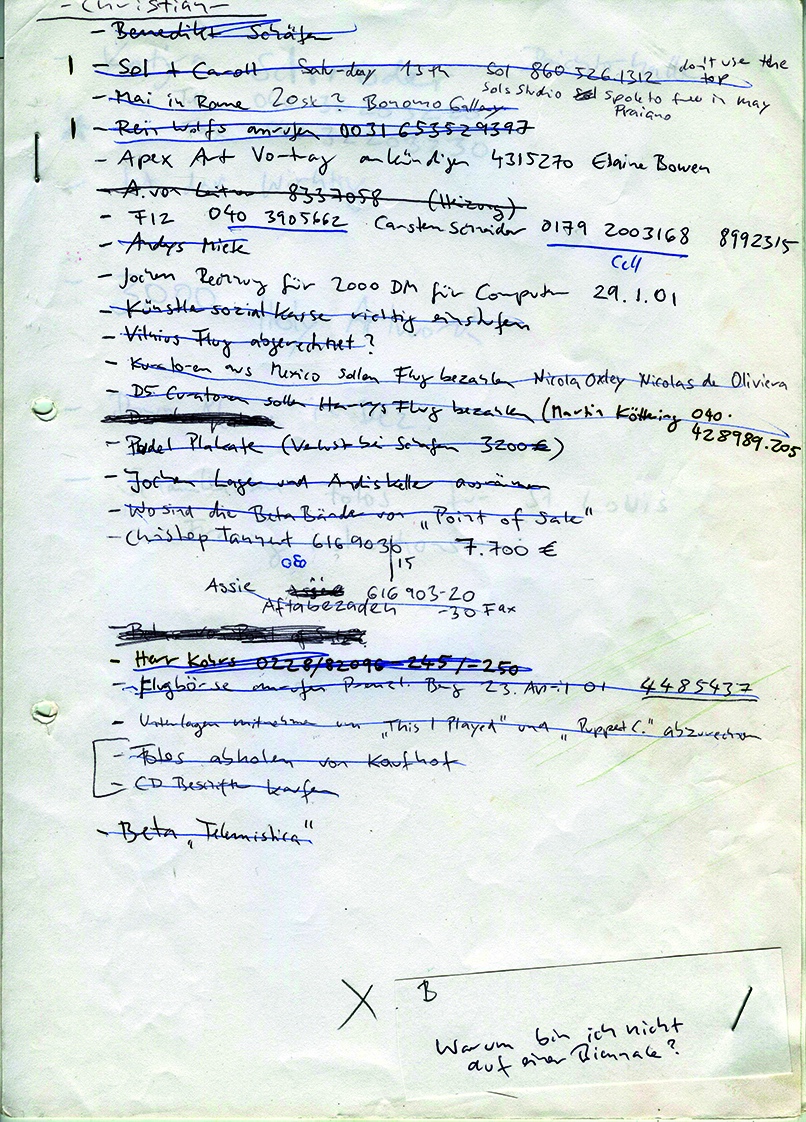 - Christian -
- Benedikt Schäfer
- Sol + Caroll Saturday 15th Sol 860 526.1312 don't use the top
- Mai in Rome 20sk? Bonomo Gallery Sols Studio spoke to in may
Praiano
- Rein Wolfs anrufen 0031 653529397
- Apex Art Vortrag ankündigen 4315270 Elaine Bowen
- A. von 8337058 (Heizung)
- F12 040 3905662 Carsten Schneider 0179 2003168 8992315
Cell
- Andys Miete
- Jochen Rechnung für 2000 DM für Computer 29.1.01
- Künstlersozialkasse richtig einstufen
- Vilnius Flug abgerechnet?
- Kuratoren aus Mexico sollen Flug bezahlen Nicola Oxley Nicolas de Oliviera
- D5 Curatoren sollen Harrys Flug bezahlen (Martin Köttering 040.
428989.205
- Pudel Plakate (Verlust bei Schäfer 3200€)
- Jochen Lager und Andiskeller ausräumen
- Wo sind die Beta Bänder von „Point of Sale"
- Christop Tannert 6169036 7.700 €
030 15
Assie 616 903-20
Aftabezadeh -30 Fax
- Herr Kohrs 0228/82096-245/=250
- Flugbörse anrufen Prenzl. Berg 23. April 01 4485437
- Unterlagen mitnehmen um „This I Played" und „Puppet C." abzurechnen
- Fotos abholen von Kaufhof
- CD Beschrifter kaufen
- Beta „Telemistica"
X B
Warum bin ich nicht
auf einer Biennale?